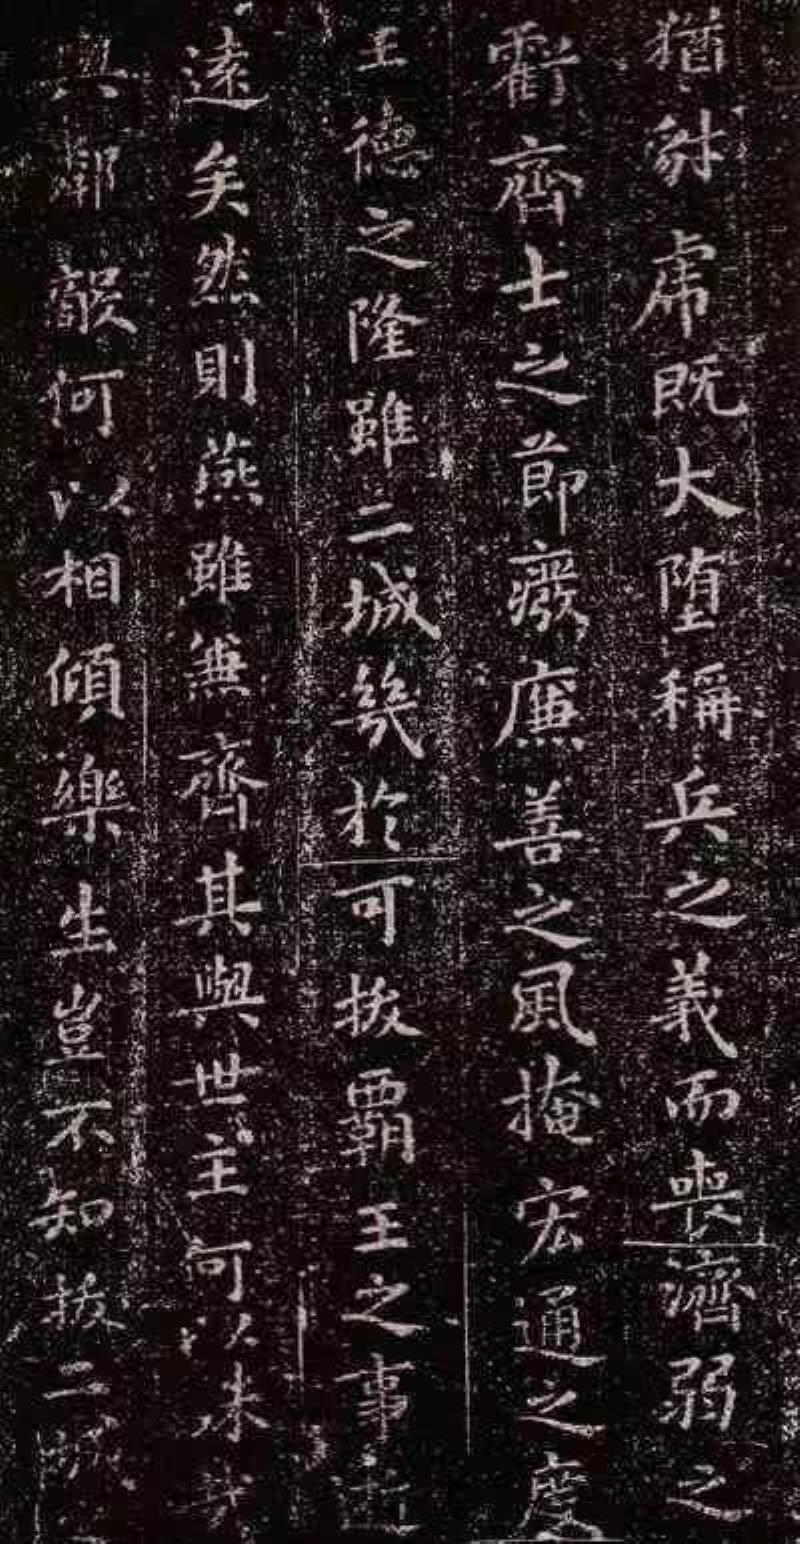 猶豺虎既大墮稱兵之義而喪濟弱之
虧齊士之節廢廉善之風掩宏通之度
王德之隆雖二城幾於可拔霸王之事逝
遠矣然則燕雖兼齊其與世主何以殊哉
與鄰敵何以相傾樂生豈不知拔二城